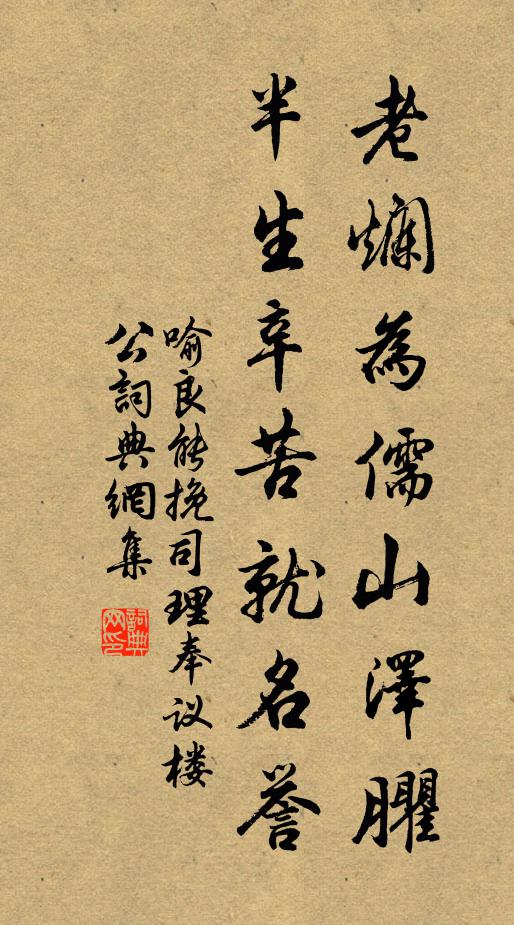 老爛為儒山澤臞
半生辛苦就名譽
喻良能挽司理奉议楼
公詞典網集
詞典网印